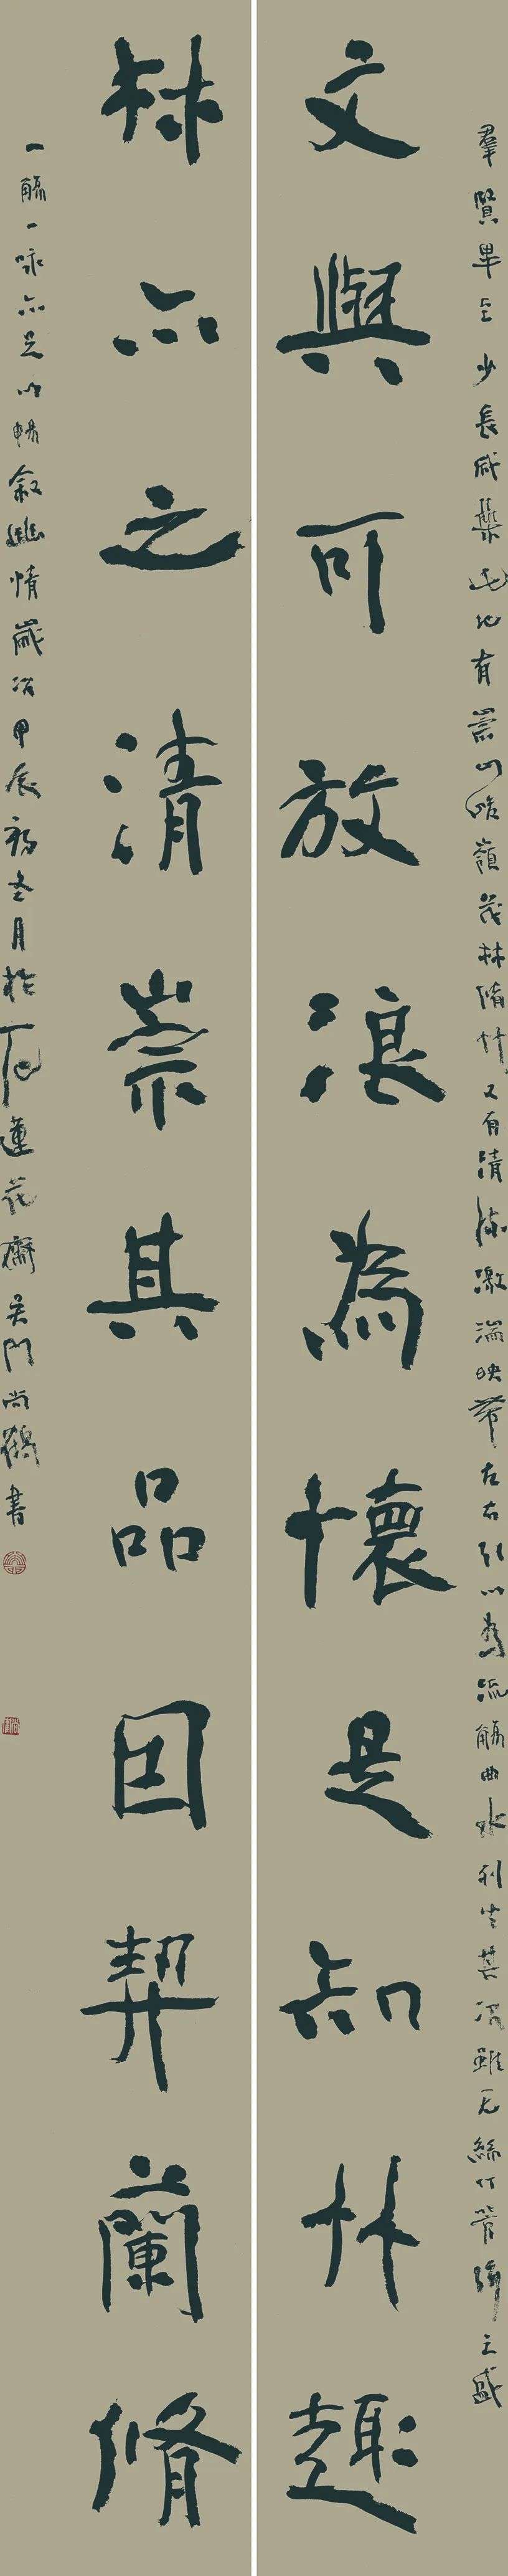 羣賢畢至少長咸集此地有崇山峻嶺茂林脩竹又有清流激湍映帶左右引以為流觴曲水列坐其次雖无絲竹管弦之盛
文與可放浪為懷是知竹趣
林亦之清崇其品因契蘭脩
一觴一咏亦足以暢敘幽情歲次甲辰初冬月於石蓮花齋吳門尚鶴書